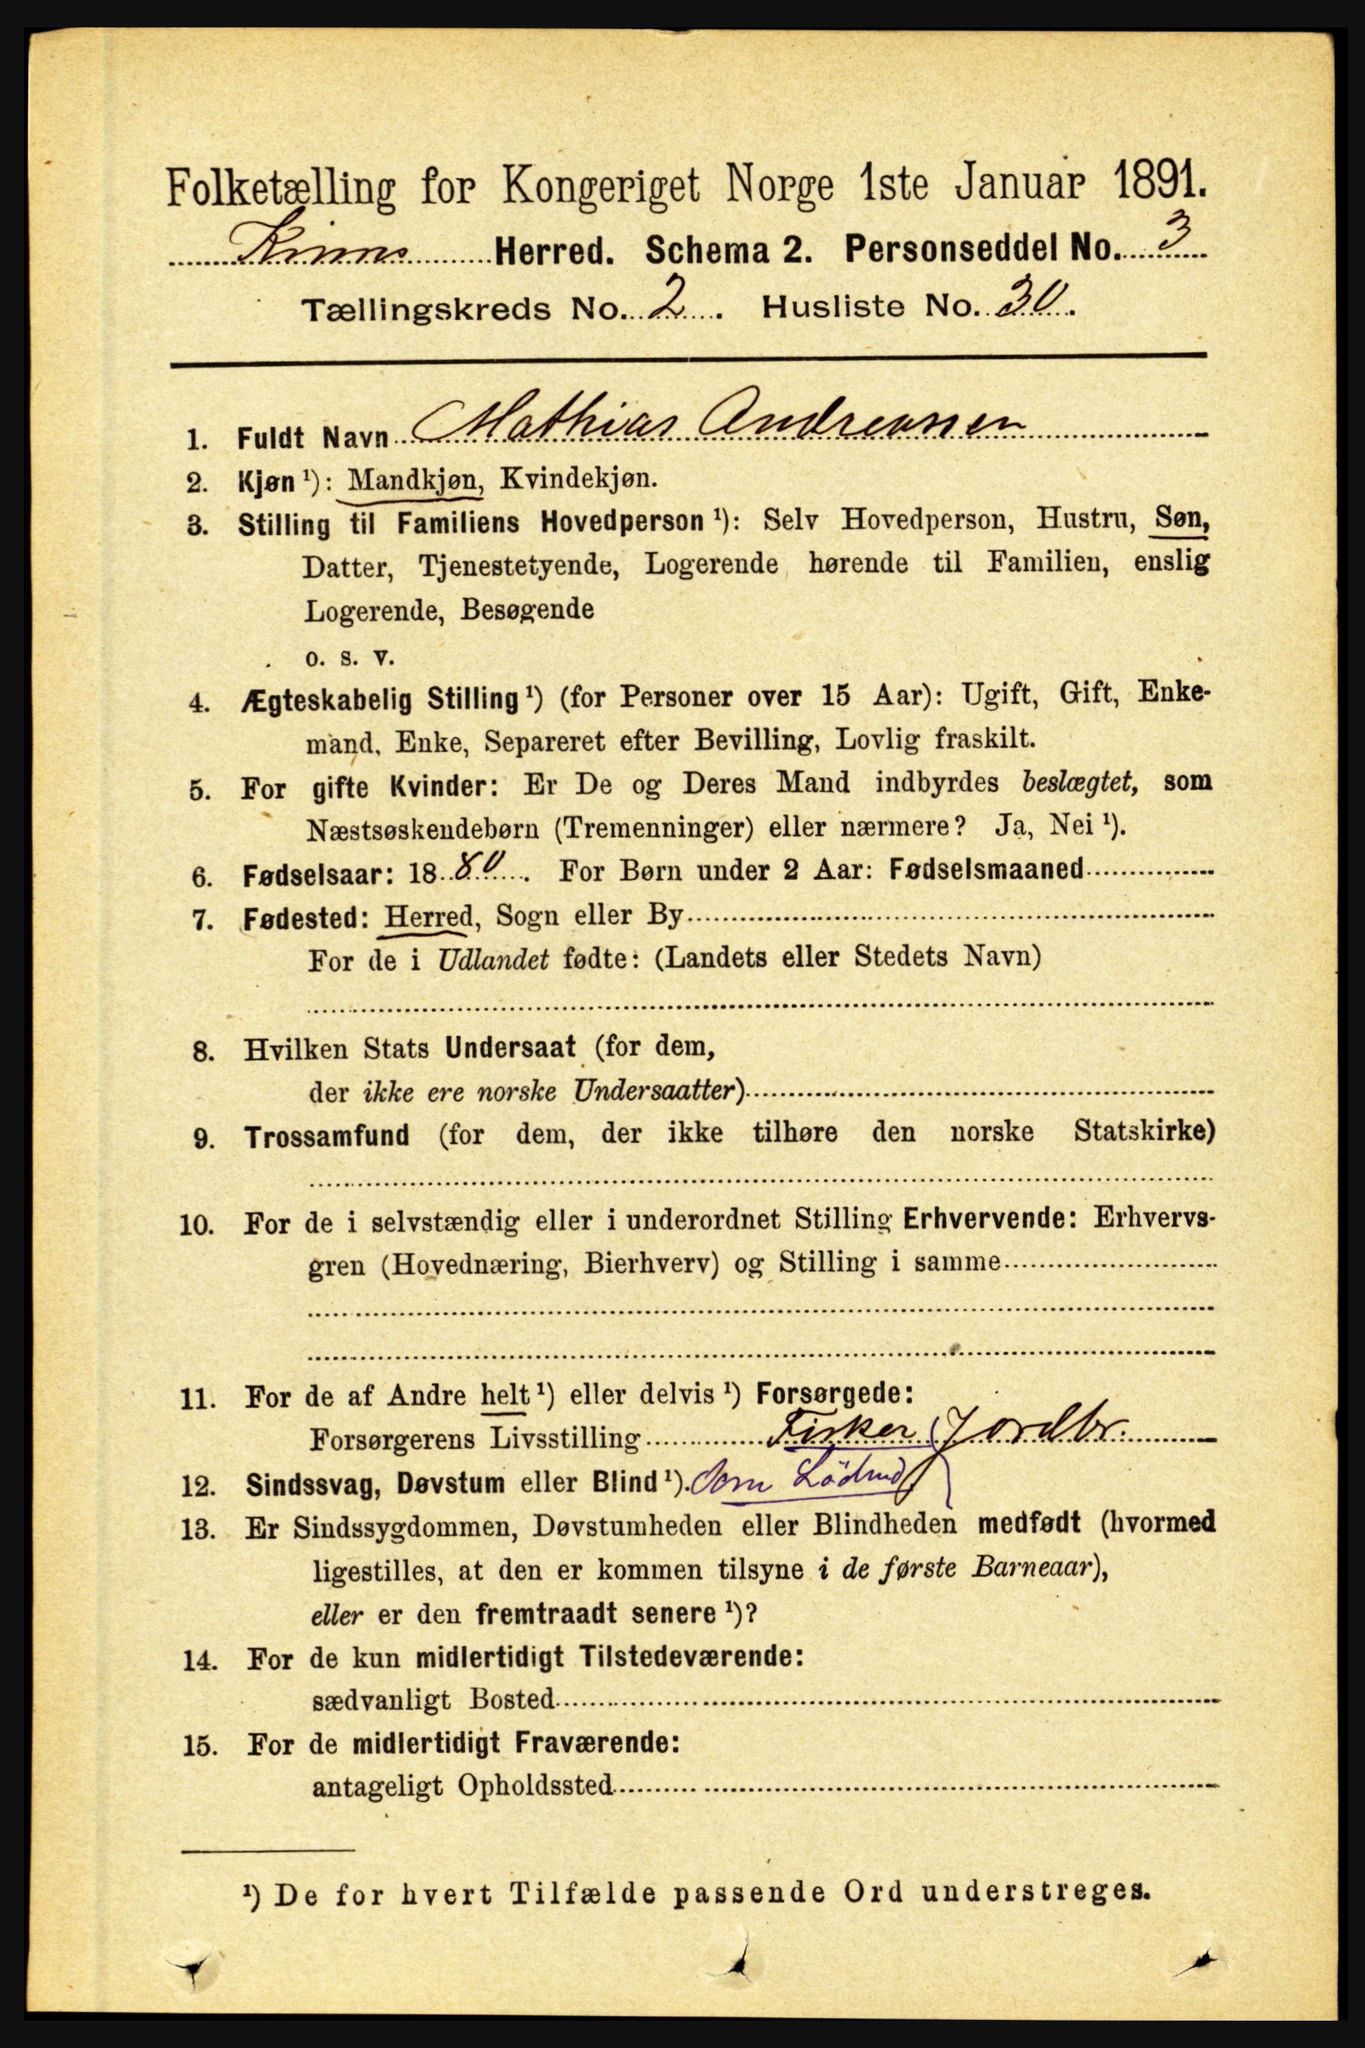 Folketælling for Kongeriget Norge 1ste Januar 1891.
Kinns Herred. Schema 2. Personseddel No. 3
Tællingskreds No. 2. Husliste No. 30.
1. Fuldt Navn Mathias Andreassen
2. Kjøn ¹): Mandkjøn, Kvindekjøn.
3. Stilling til Familiens Hovedperson ¹): Selv Hovedperson, Hustru, Søn,
Datter, Tjenestetyende, Logerende hørende til Familien, enslig
Logerende, Besøgende
o. s. v.
4. Ægteskabelig Stilling ¹) (for Personer over 15 Aar): Ugift, Gift, Enke-
mand, Enke, Separeret efter Bevilling, Lovlig fraskilt.
5. For gifte Kvinder: Er De og Deres Mand indbyrdes beslægtet, som
Næstsøskendebørn (Tremenninger) eller nærmere? Ja, Nei ¹).
6. Fødselsaar: 1880. For Børn under 2 Aar: Fødselsmaaned
7. Fødested: Herred, Sogn eller By
For de i Udlandet fødte: (Landets eller Stedets Navn)
8. Hvilken Stats Undersaat (for dem,
der ikke ere norske Undersaatter)
9. Trossamfund (for dem, der ikke tilhøre den norske Statskirke)
10. For de i selvstændig eller i underordnet Stilling Erhvervende: Erhvervs-
gren (Hovednæring, Bierhverv) og Stilling i samme
11. For de af Andre helt ¹) eller delvis ¹) Forsørgede:
Forsørgerens Livsstilling Fisker Jordbr.
12. Sindssvag, Døvstum eller Blind ¹).
13. Er Sindssygdommen, Døvstumheden eller Blindheden medfødt (hvormed
ligestilles, at den er kommen tilsyne i de første Barneaar),
eller er den fremtraadt senere ¹)?
14. For de kun midlertidigt Tilstedeværende:
sædvanligt Bosted
15. For de midlertidigt Fraværende:
antageligt Opholdssted
¹) De for hvert Tilfælde passende Ord understreges.